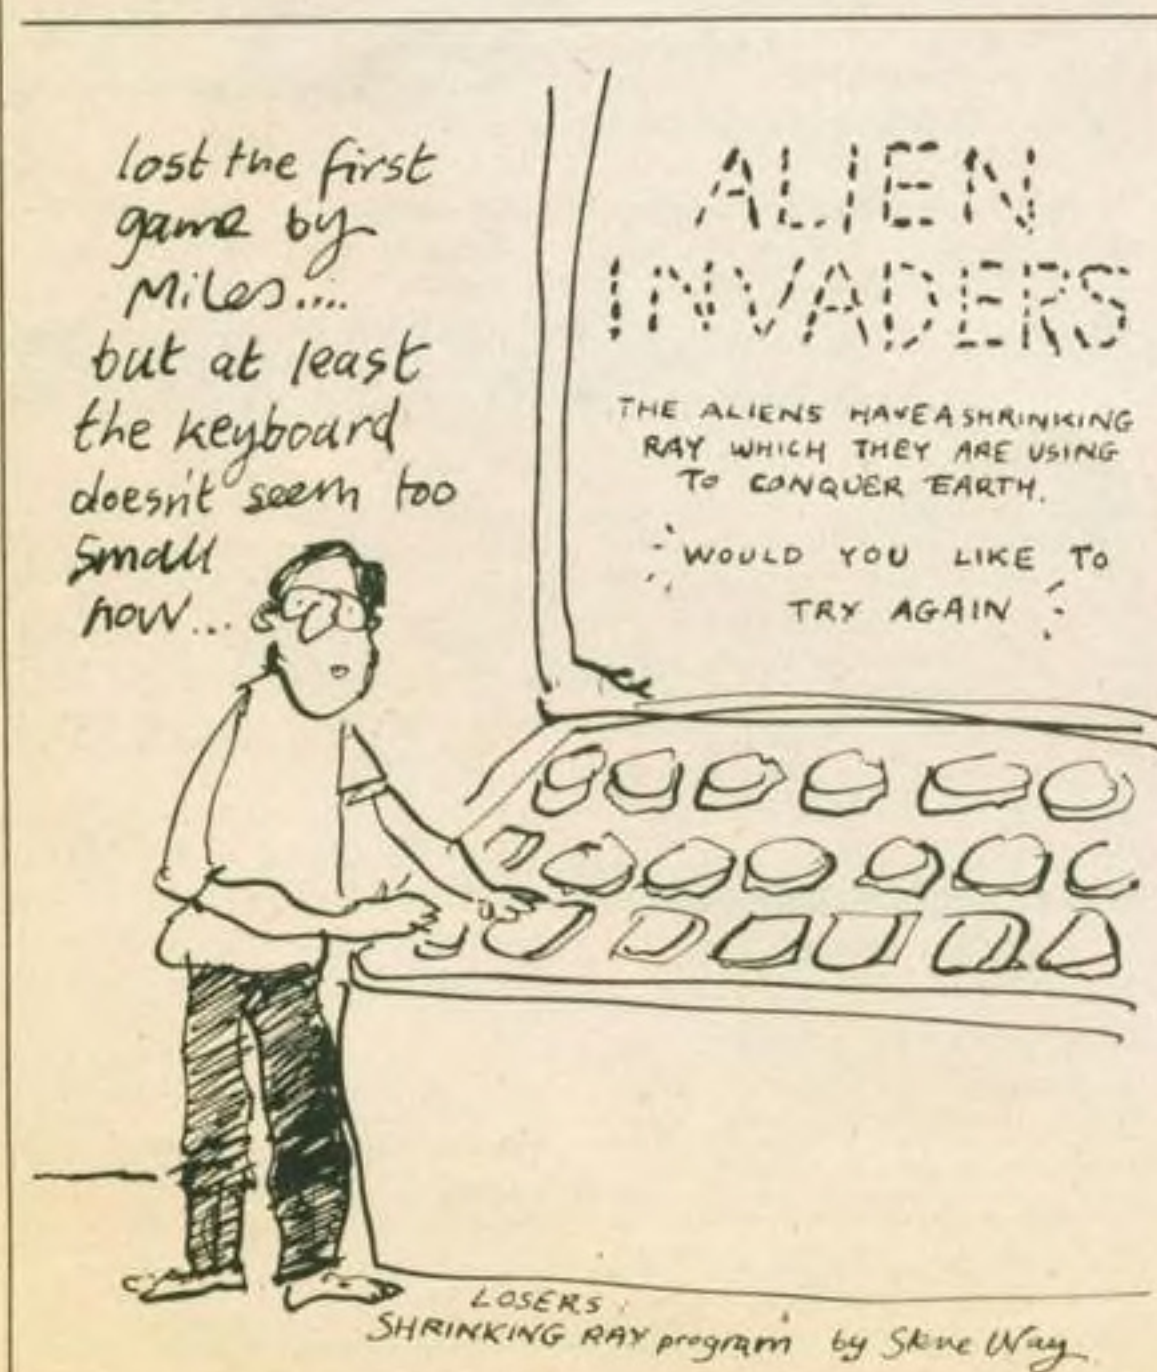 lost the first
game by
Miles....
but at least
the keyboard
doesn't seem too
small
now...
ALIEN
INVADERS
THE ALIENS HAVE A SHRINKING
RAY WHICH THEY ARE USING
TO CONQUER EARTH.
WOULD YOU LIKE TO
TRY AGAIN
LOSERS
SHRINKING RAY program by Steve Way